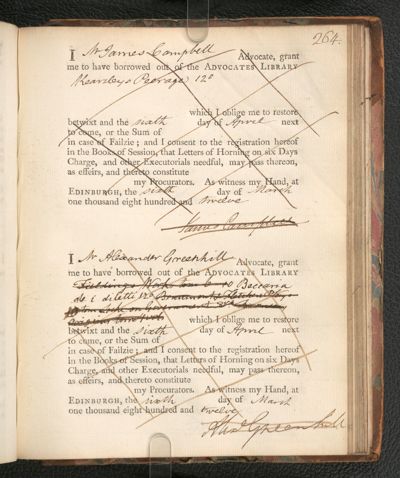 264.
I Mr James Campbell Advocate, grant
me to have borrowed out of the ADVOCATES LIBRARY
Kearsley's Peerage 12º
which I oblige me to restore
betwixt and the sixth day of April next
to come, or the Sum of
in case of Failzie; and I consent to the registration hereof
in the Books of Session, that Letters of Horning on six Days
Charge, and other Executorials needful, may pass thereon,
as effeirs, and thereto constitute
my Procurators. As witness my Hand, at
EDINBURGH, the sixth day of March
one thousand eight hundred and twelve
James Campbell
I Mr Alexander Greenhill Advocate, grant
me to have borrowed out of the ADVOCATES LIBRARY
Fieldings Works Beccaria
de i delitti 12º
which I oblige me to restore
betwixt and the sixth day of April next
to come, or the Sum of
in case of Failzie; and I consent to the registration hereof
in the Books of Session, that Letters of Horning on six Days
Charge, and other Executorials needful, may pass thereon,
as effeirs, and thereto constitute
my Procurators. As witness my Hand, at
EDINBURGH, the sixth day of March
one thousand eight hundred and twelve
Alexr Greenhill